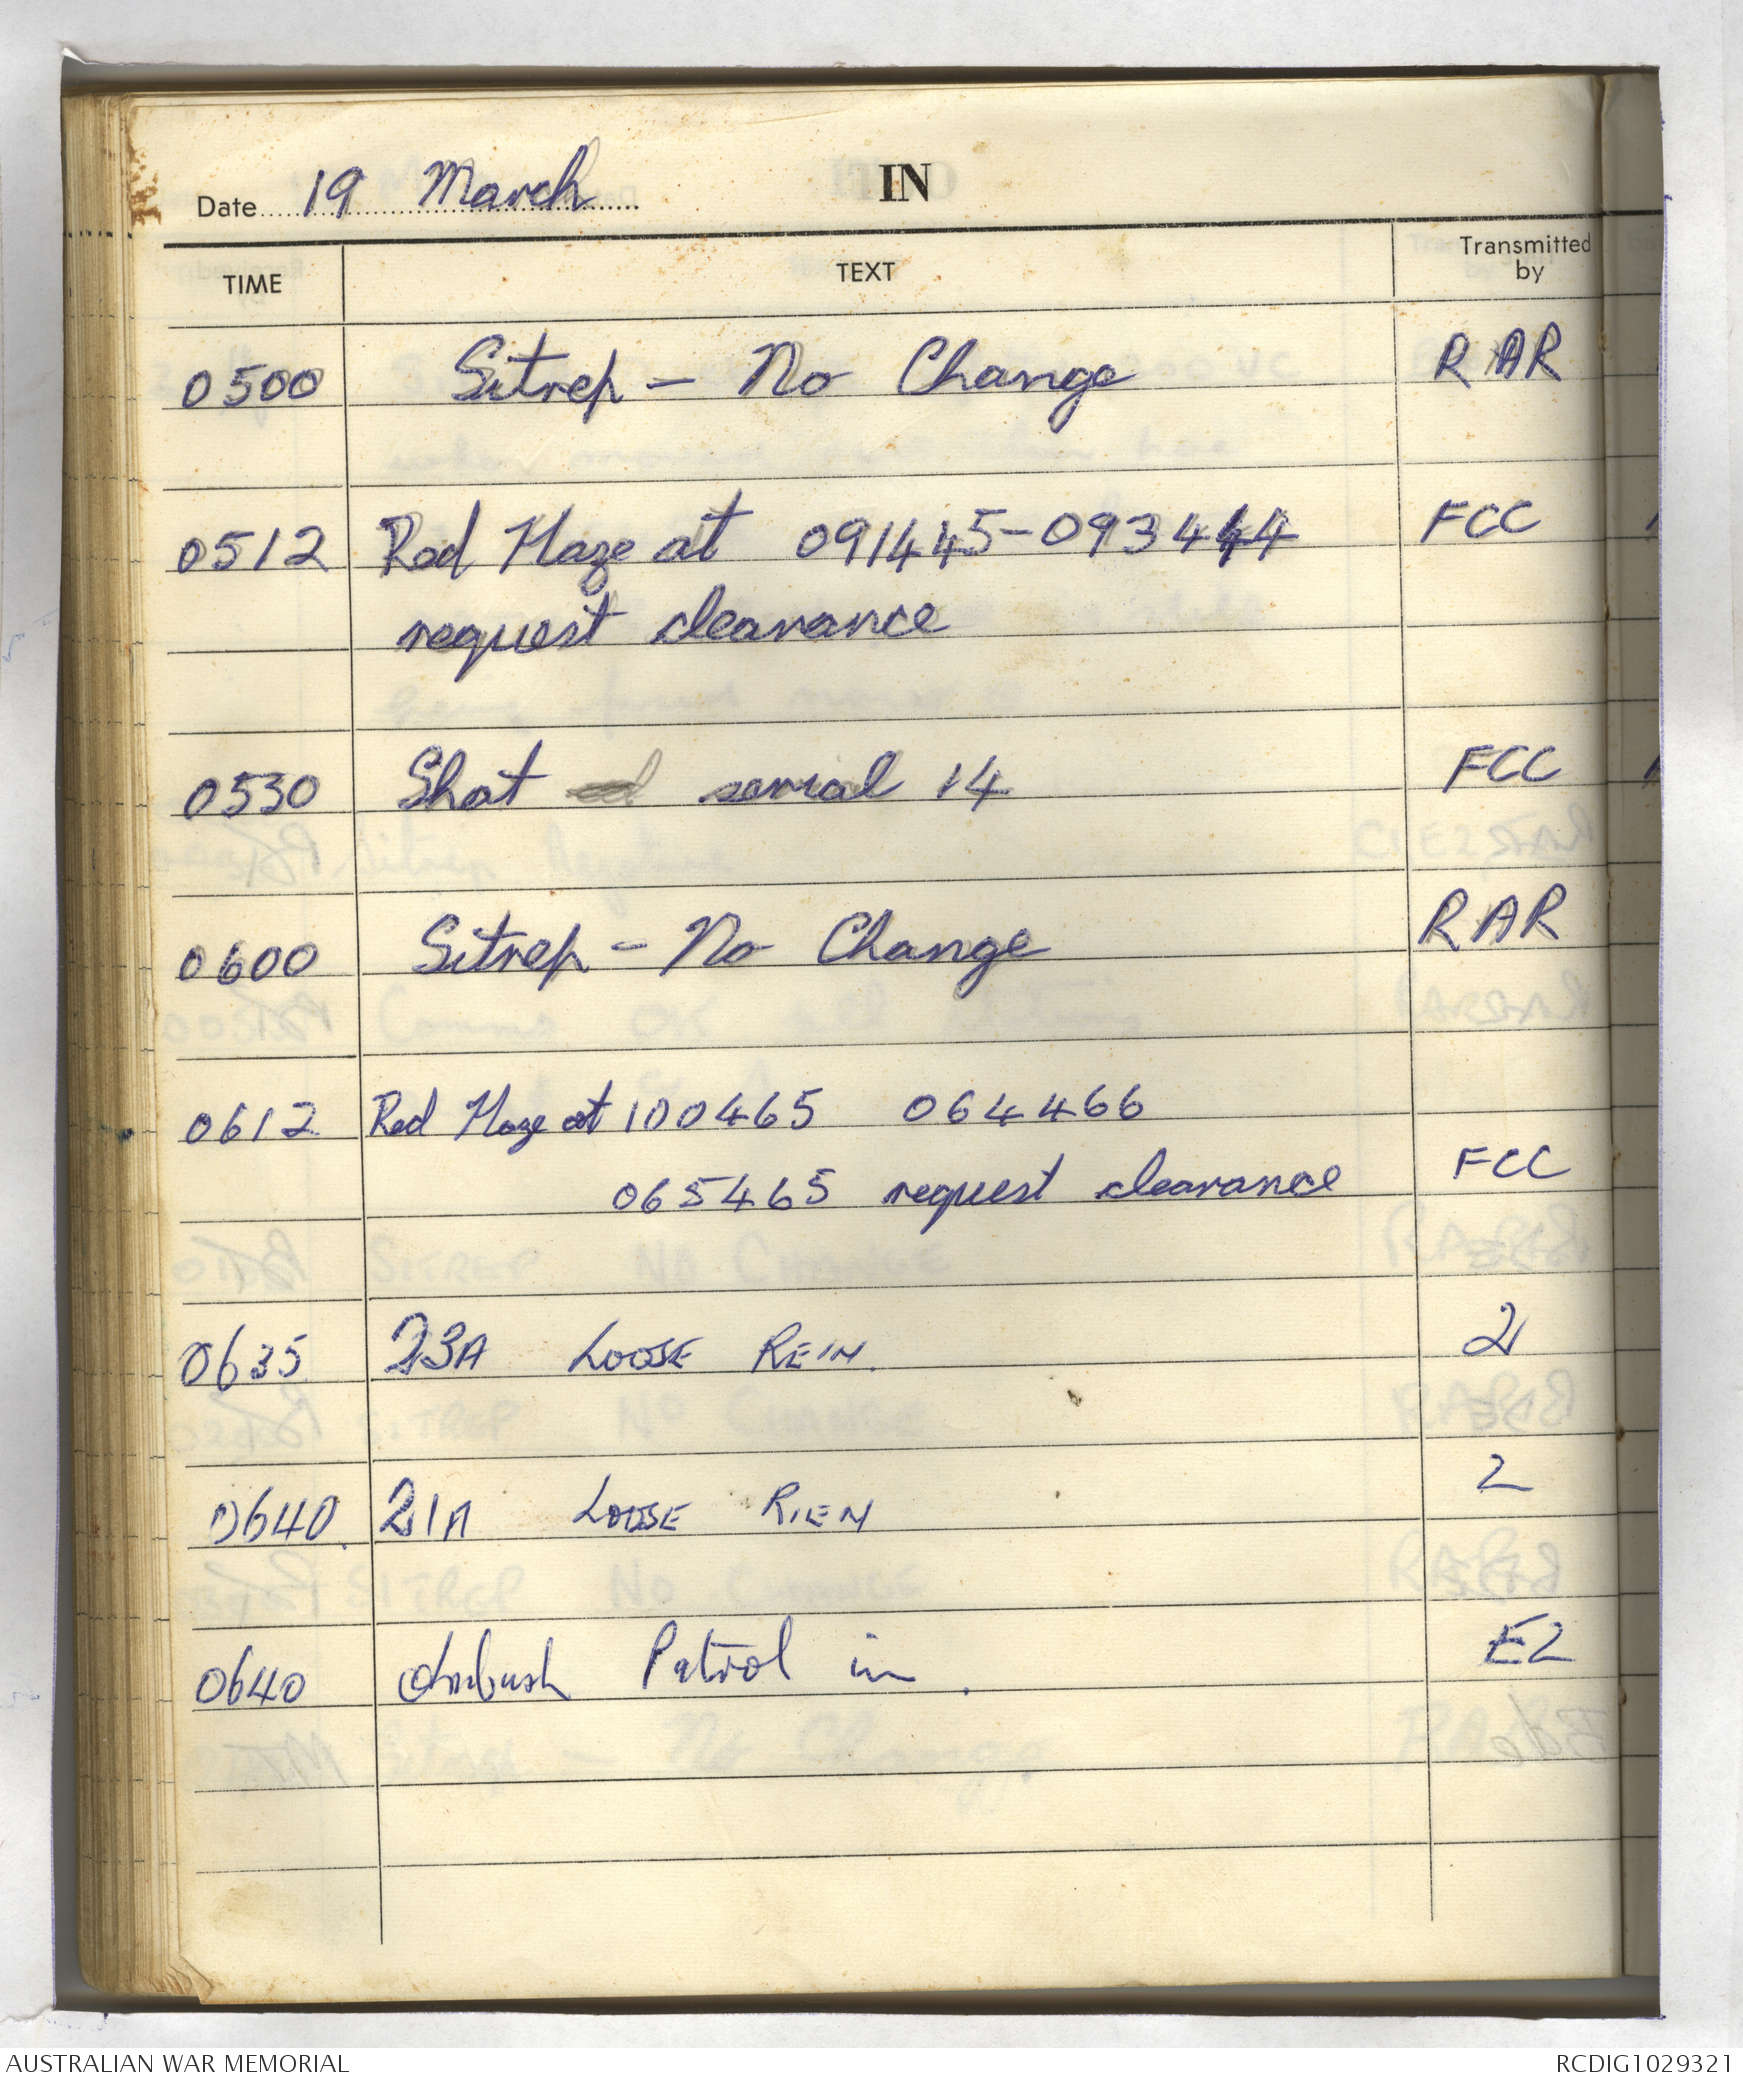 Date 19 March IN
TIME TEXT Transmitted by
0500 Sitrep - No Change RAR
0512 Red Haze at 091445-093444 FCC
request clearance
0530 Shot serial 14 FCC
0600 Sitrep - No Change RAR
0612 Red Haze at 100465 064466
065465 request clearance FCC
0635 23A LOOSE REIN. 2
0640. 21A LOOSE RIEN 2
0640 Ambush Patrol in. E2
AUSTRALIAN WAR MEMORIAL RCDIG1029321